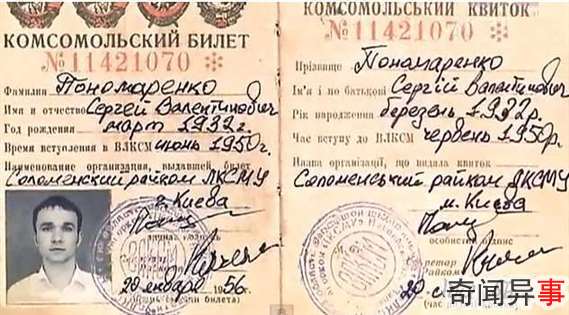 КОМСОМОЛЬСКИЙ БИЛЕТ
№11421070
Фамилия Пономаренко
Имя и отчество Сергей Валентинович
Год рождения март 1932г.
Время вступления в ВЛКСМ июнь 1950г.
Наименование организации, выдавшей билет
Соломенский райком ЛКСМУ
г. Киева
20 января 1956г.
КОМСОМОЛЬСЬКИЙ КВИТОК
№11421070
Прізвище Пономаренко
Ім'я і по батькові Сергій Валентинович
Рік народження березень 1932р.
Час вступу до ВЛКСМ червень 1950р.
Назва організації, що видала квиток
Соломенський райком ЛКСМУ
м. Києва
особистий підпис
20
奇闻异事